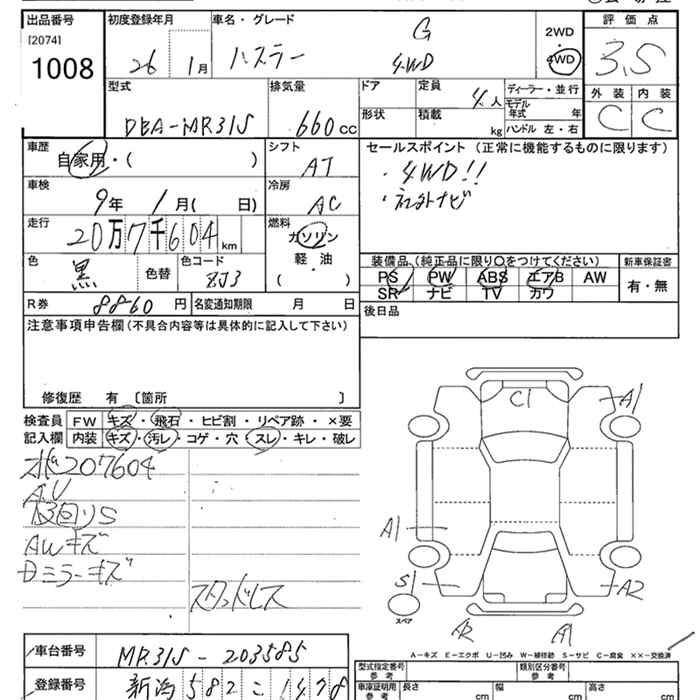 出品番号 初度登録年月 車名・グレード 評価点
[2074]
1008
26 1月 ハスラー G 4WD
2WD
・
4WD
3.5
外装 内装
C C
型式 排気量 ドア 定員 ディーラー・並行
DBA-MR31S 660cc 4人 モデル年式 年
形状 積載 kg ハンドル 左・右
車歴 シフト セールスポイント (正常に機能するものに限ります)
自家用・( ) AT ・4WD!!
車検 冷房 ・ネオトナビ
9年 1月( 日) AC
走行 燃料
20万7千604km ガソリン
軽・油
( )
色 色替 色コード
黒 ZJ3
装備品 (純正品に限り〇をつけてください) 新車保証書
PS PW ABS エアB AW 有・無
SR ナビ TV カワ
R券 8860円 名変通知期限 月 日
後日品
注意事項申告欄(不具合内容等は具体的に記入して下さい)
修復歴 有 〔箇所 〕
検査員 FW キズ・飛石・ヒビ割・リペア跡・×要
記入欄 内装 キズ・汚レ・コゲ・穴・スレ・キレ・破レ
207604
AWキズ
Dミラーキズ
スタッドレス
C1
A1
A1
S
スペア
A2
A2
A1
A-キズ E-エクボ U-凹み W-補修跡 S-サビ C-腐食 ××-交換済
車台番号 MR31S-203585
登録番号 新潟582こ1478
型式指定番号 参考 類別区分番号 参考
車庫証明用 参考 長さ cm 幅 cm 高さ cm